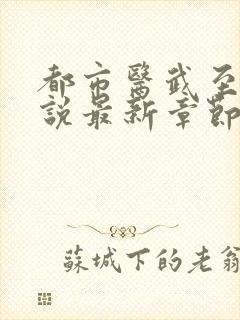 都市醫武至
說最新章節
蘇城下的老翁